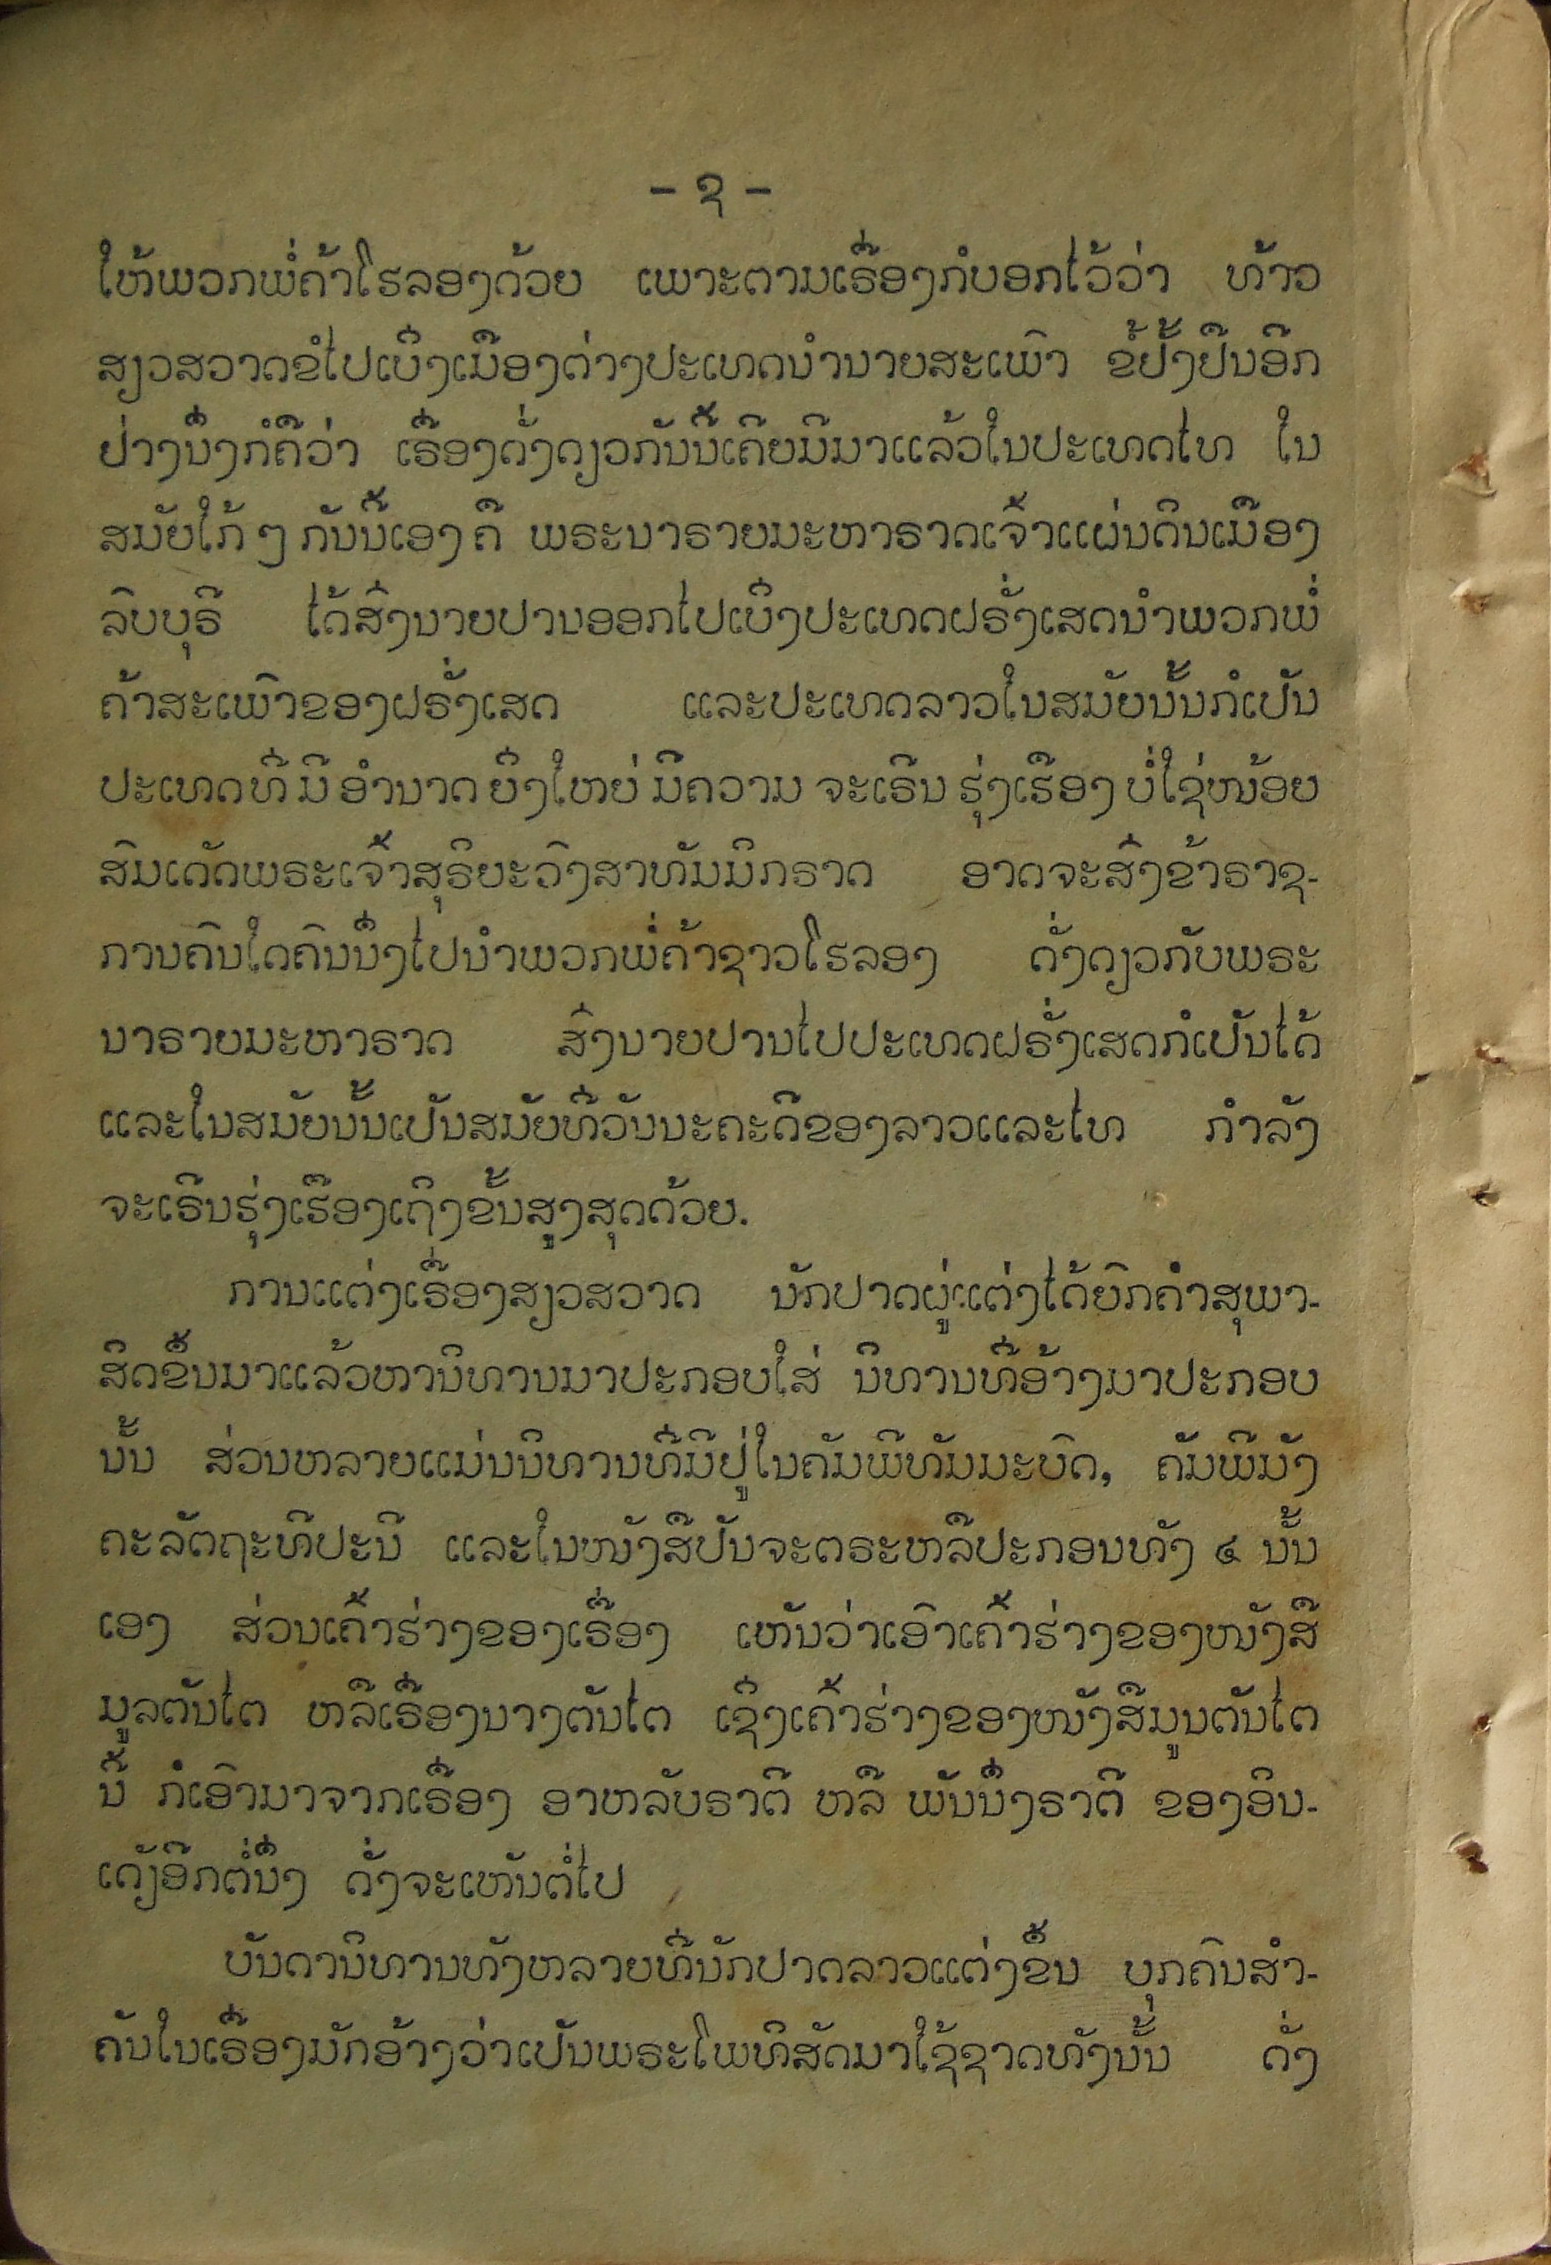 - ຊ -
ໃຫ້ພວກພໍ່ຄ້າໂຮລອງດ້ວຍ ເພາະຕາມເຣື່ອງກໍບອກໄວ້ວ່າ ທ້າວ
ສຽວສວາດຂໍໄປເບິ່ງເມືອງຕ່າງປະເທດນຳນາຍສະເພົາ ຂໍ້ຢັ້ງຢືນອີກ
ຢ່າງນຶ່ງກໍຄືວ່າ ເຣື່ອງດັ່ງດຽວກັນນີ້ເຄີຍມີມາແລ້ວໃນປະເທດໄທ ໃນ
ສມັຍໃກ້ ໆ ກັນນີ້ເອງ ຄື ພຣະນາຣາຍມະຫາຣາດເຈົ້າແຜ່ນດິນເມືອງ
ລົບບຸຣີ ໄດ້ສົ່ງນາຍປານອອກໄປເບິ່ງປະເທດຝຣັ່ງເສດນຳພວກພໍ່
ຄ້າສະເພົາຂອງຝຣັ່ງເສດ ແລະປະເທດລາວໃນສມັຍນັ້ນກໍເປັນ
ປະເທດທີ່ ມີ ອຳນາດ ຍິ່ງໃຫຍ່ ມີຄວາມ ຈະເຣີນ ຮຸ່ງເຮືອງ ບໍ່ໃຊ່ໜ້ອຍ
ສົມເດັດພຣະເຈົ້າສຸຣິຍະວົງສາທັມມິກຣາດ ອາດຈະສົ່ງຂ້າຣາຊ-
ການຄົນໃດຄົນນຶ່ງໄປນຳພວກພໍ່ຄ້າຊາວໂຮລອງ ດັ່ງດຽວກັບພຣະ
ນາຣາຍມະຫາຣາດ ສົ່ງນາຍປານໄປປະເທດຝຣັ່ງເສດກໍເປັນໄດ້
ແລະໃນສມັຍນັ້ນເປັນສມັຍທີ່ວັນນະຄະດີຂອງລາວແລະໄທ ກຳລັງ
ຈະເຣີນຮຸ່ງເຮືອງເຖິງຂັ້ນສູງສຸດດ້ວຍ.
ການແຕ່ງເຣື່ອງສຽວສວາດ ນັກປາດຜູ່ແຕ່ງໄດ້ຍົກຄຳສຸພາ-
ສິດຂຶ້ນມາແລ້ວຫານິທານມາປະກອບໃສ່ ນິທານທີ່ອ້າງມາປະກອບ
ນັ້ນ ສ່ວນຫລາຍແມ່ນນິທານທີ່ມີຢູ່ໃນຄັມພີທັມມະບົດ, ຄັມພີມັງ
ຄະລັຕຖະທີປະນີ ແລະໃນໜັງສືປັນຈະຕຣະຫລືປະກອນທັງ ໔ ນັ້ນ
ເອງ ສ່ວນເຄົ້າຮ່າງຂອງເຣື່ອງ ເຫັນວ່າເອົາເຄົ້າຮ່າງຂອງໜັງສື
ມູລຕັນໄຕ ຫລືເຣື່ອງນາງຕັນໄຕ ເຊິ່ງເຄົ້າຮ່າງຂອງໜັງສືມູນຕັນໄຕ
ນີ້ ກໍເອົາມາຈາກເຣື່ອງ ອາຫລັບຣາຕີ ຫລື ພັນນຶ່ງຣາຕີ ຂອງອິນ-
ເດັຽອີກຕໍ່ນຶ່ງ ດັ່ງຈະເຫັນຕໍ່ໄປ
ບັນດານິທານທັງຫລາຍທີ່ນັກປາດລາວແຕ່ງຂຶ້ນ ບຸກຄົນສຳ-
ຄັນໃນເຣື່ອງມັກອ້າງວ່າເປັນພຣະໂພທິສັດມາໃຊ້ຊາດທັງນັ້ນ ດັ່ງ